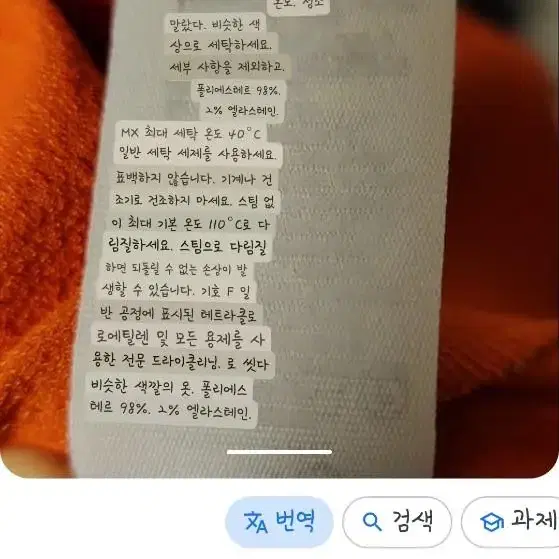 온도. 섬소
말랐다. 비슷한 색
상으로 세탁하세요.
세부 사항을 제외하고.
폴리에스테르 98%.
2% 엘라스테인.
MX 최대 세탁 온도 40°C
일반 세탁 세제를 사용하세요.
표백하지 않습니다. 기계나 건
조기로 건조하지 마세요. 스팀 없
이 최대 기본 온도 110°C로 다
림질하세요. 스팀으로 다림질
하면 되돌릴 수 없는 손상이 발
생할 수 있습니다. 기호 F 일
반 공정에 표시된 테트라클로
로에틸렌 및 모든 용제를 사
용한 전문 드라이클리닝. 로 씻다
비슷한 색깔의 옷. 폴리에스
테르 98%. 2% 엘라스테인.
번역 검색 과제